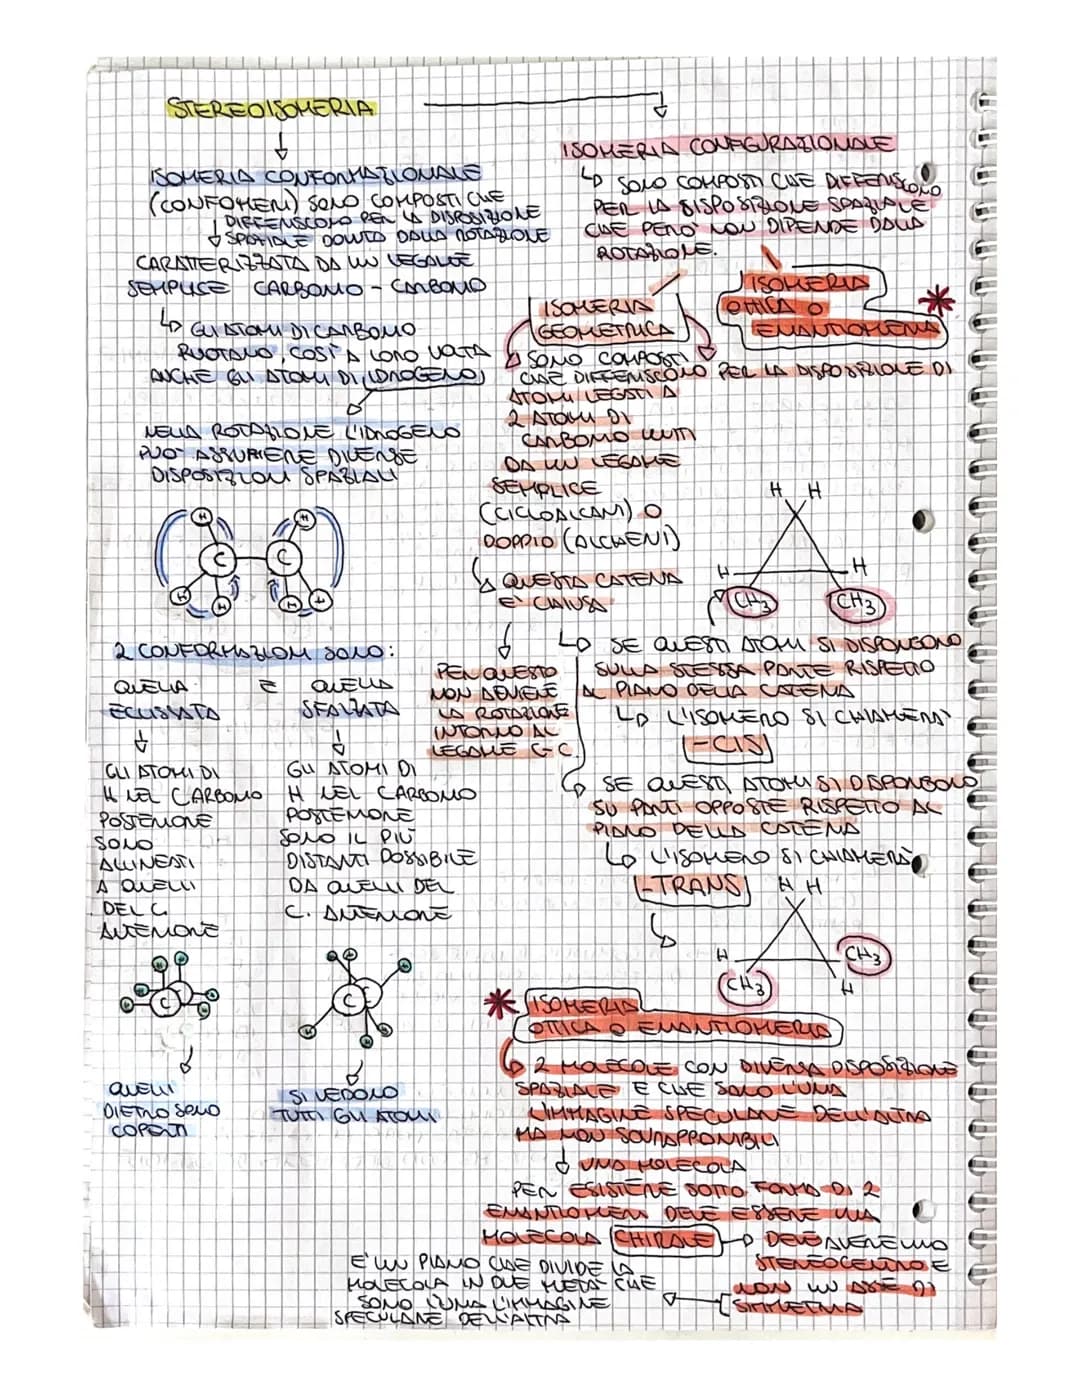 STEREOISOMERIA
ISOMERIA CONFORMAZIONALE
(CONFOMERI) SONO COMPOSTI CHE
DIFFERISCONO PER LA DISPOSIZIONE
SPAZIALE DOVUTA DALLA ROTAZIONE
CARATTERIZZATA DA UN LEGAME
SEMPLICE CARBONIO - CARBONIO
GLI ATOMI DI CARBONIO
RUOTANO, COSÌ A LORO VOLTA
ANCHE GLI ATOMI DI IDROGENO
NELLA ROTAZIONE L'IDROGENO
PUO' ASSUMERE DIVERSE
DISPOSIZIONI SPAZIALI
H
H
C
C
H
H
H
H
2 CONFORMAZIONI SONO:
QUELLA E QUELLA
ECLISSATA SFALZATA
GLI ATOMI DI
H NEL CARBONIO
POSTERIORE
SONO
ALLINEATI
A QUELLI
DEL C.
ANTERIORE
GLI ATOMI DI
H NEL CARBONIO
POSTERIORE
SONO IL PIÙ
DISTANTI POSSIBILE
DA QUELLI DEL
C. ANTERIORE
C
C C
QUELLI
DIETRO SONO
COPERTI
SI VEDONO
TUTTI GLI ATOMI
ISOMERIA CONFIGURAZIONALE
SONO COMPOSTI CHE DIFFERISCONO
PER LA DISPOSIZIONE SPAZIALE
CHE PERO' NON DIPENDE DALLA
ROTAZIONE.
ISOMERIA
GEOMETRICA
ISOMERIA
OTTICA O
ENANTIOMERIA
*
SONO COMPOSTI
CHE DIFFERISCONO PER LA DISPOSIZIONE DI
ATOMI LEGATI A
2 ATOMI DI
CARBONIO UNITI
DA UN LEGAME
SEMPLICE
(CICLOALCANI) O
DOPPIO (ALCHENI)
QUESTA CATENA
E' CHIUSA
PER QUESTO
NON AVVIENE
LA ROTAZIONE
INTORNO AL
LEGAME C-C.
H H
H
H
CH3
CH3
SE QUESTI ATOMI SI DISPONGONO
SULLA STESSA PARTE RISPETTO
AL PIANO DELLA CATENA
L'ISOMERO SI CHIAMERA'
-CIS
SE QUESTI ATOMI SI DISPONGONO
SU PARTI OPPOSTE RISPETTO AL
PIANO DELLA CATENA
L'ISOMERO SI CHIAMERÀ
-TRANS
H H
H
CH3
CH3
H
* ISOMERIA
OTTICA O ENANTIOMERIA
2 MOLECOLE CON DIVERSA DISPOSIZIONE
SPAZIALE E CHE SONO L'UNA
L'IMMAGINE SPECULARE DELL'ALTRA
MA NON SOVRAPPONIBILI
UNA MOLECOLA
PER ESISTERE SOTTO FORMA DI 2
ENANTIOMERI DEVE ESSERE UNA
MOLECOLA CHIRALE
DEVE AVERE UNO
STEREOCENTRO E
NON UN ASSE DI
SIMMETRIA
E' UN PIANO CHE DIVIDE LA
MOLECOLA IN DUE META' CHE
SONO L'UNA L'IMMAGINE
SPECULARE DELL'ALTRA